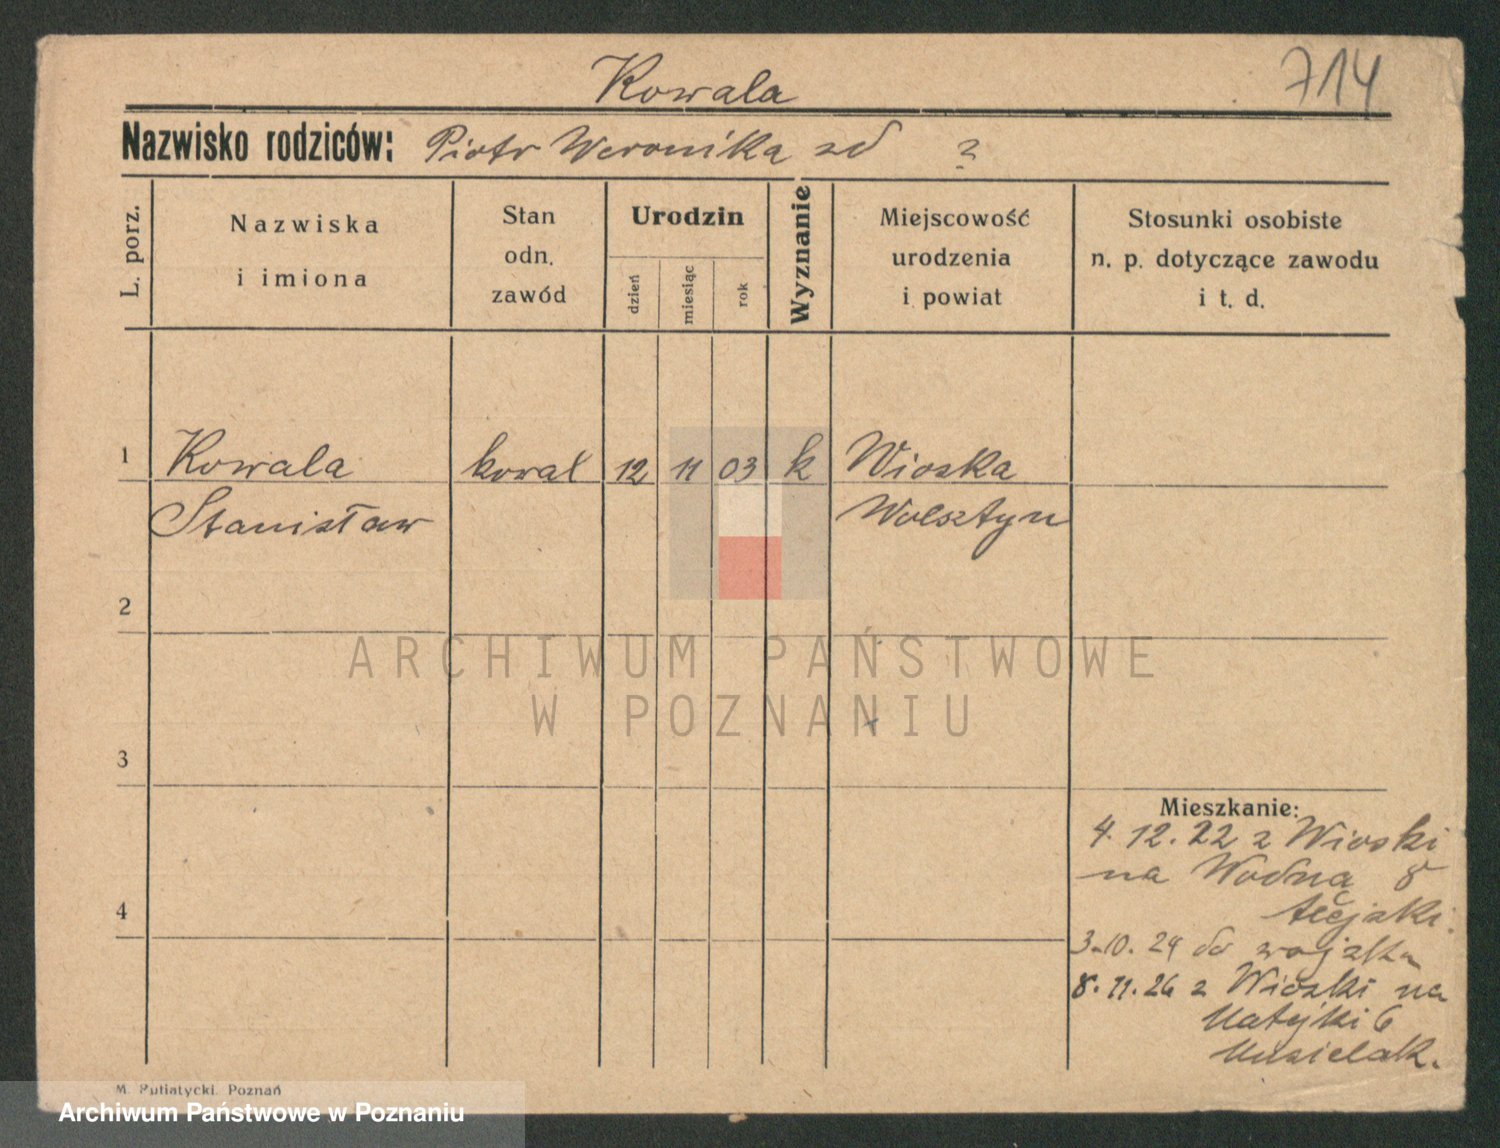 Kowala
714
Nazwisko rodziców: Piotr Weronika zd ?
L. porz.
Nazwiska
i imiona
Stan
odn.
zawód
Urodzin
dzień
miesiąc
rok
Wyznanie
Miejscowość
urodzenia
i powiat
Stosunki osobiste
n. p. dotyczące zawodu
i t. d.
1 Kowala kowal 12 11 03 k Wioska
Stanisław Wolsztyn
2
3
4
ARCHIWUM PAŃSTWOWE
W POZNANIU
Mieszkanie:
4. 12. 22 z Wioski
na Wodną 8
3.10. 24 do wojska
8. 11. 26 z Wioski na
Matejki 6
M. Putiatycki. Poznań
Archiwum Państwowe w Poznaniu